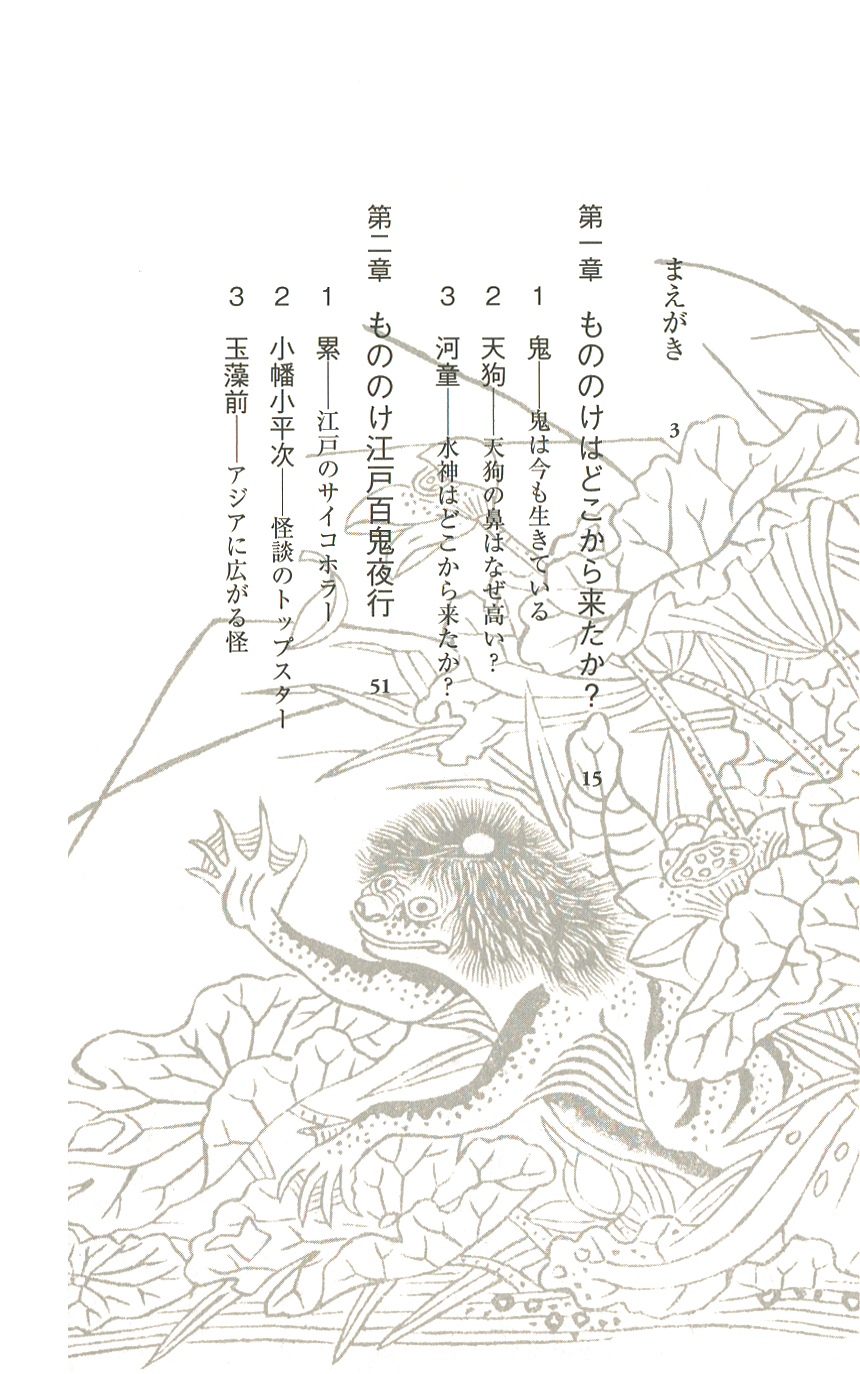 まえがき 3
第一章 もののけはどこから来たか? 15
1 鬼——鬼は今も生きている
2 天狗——天狗の鼻はなぜ高い?
3 河童——水神はどこから来たか?
第二章 もののけ江戸百鬼夜行 51
1 累——江戸のサイコホラー
2 小幡小平次——怪談のトップスター
3 玉藻前——アジアに広がる怪